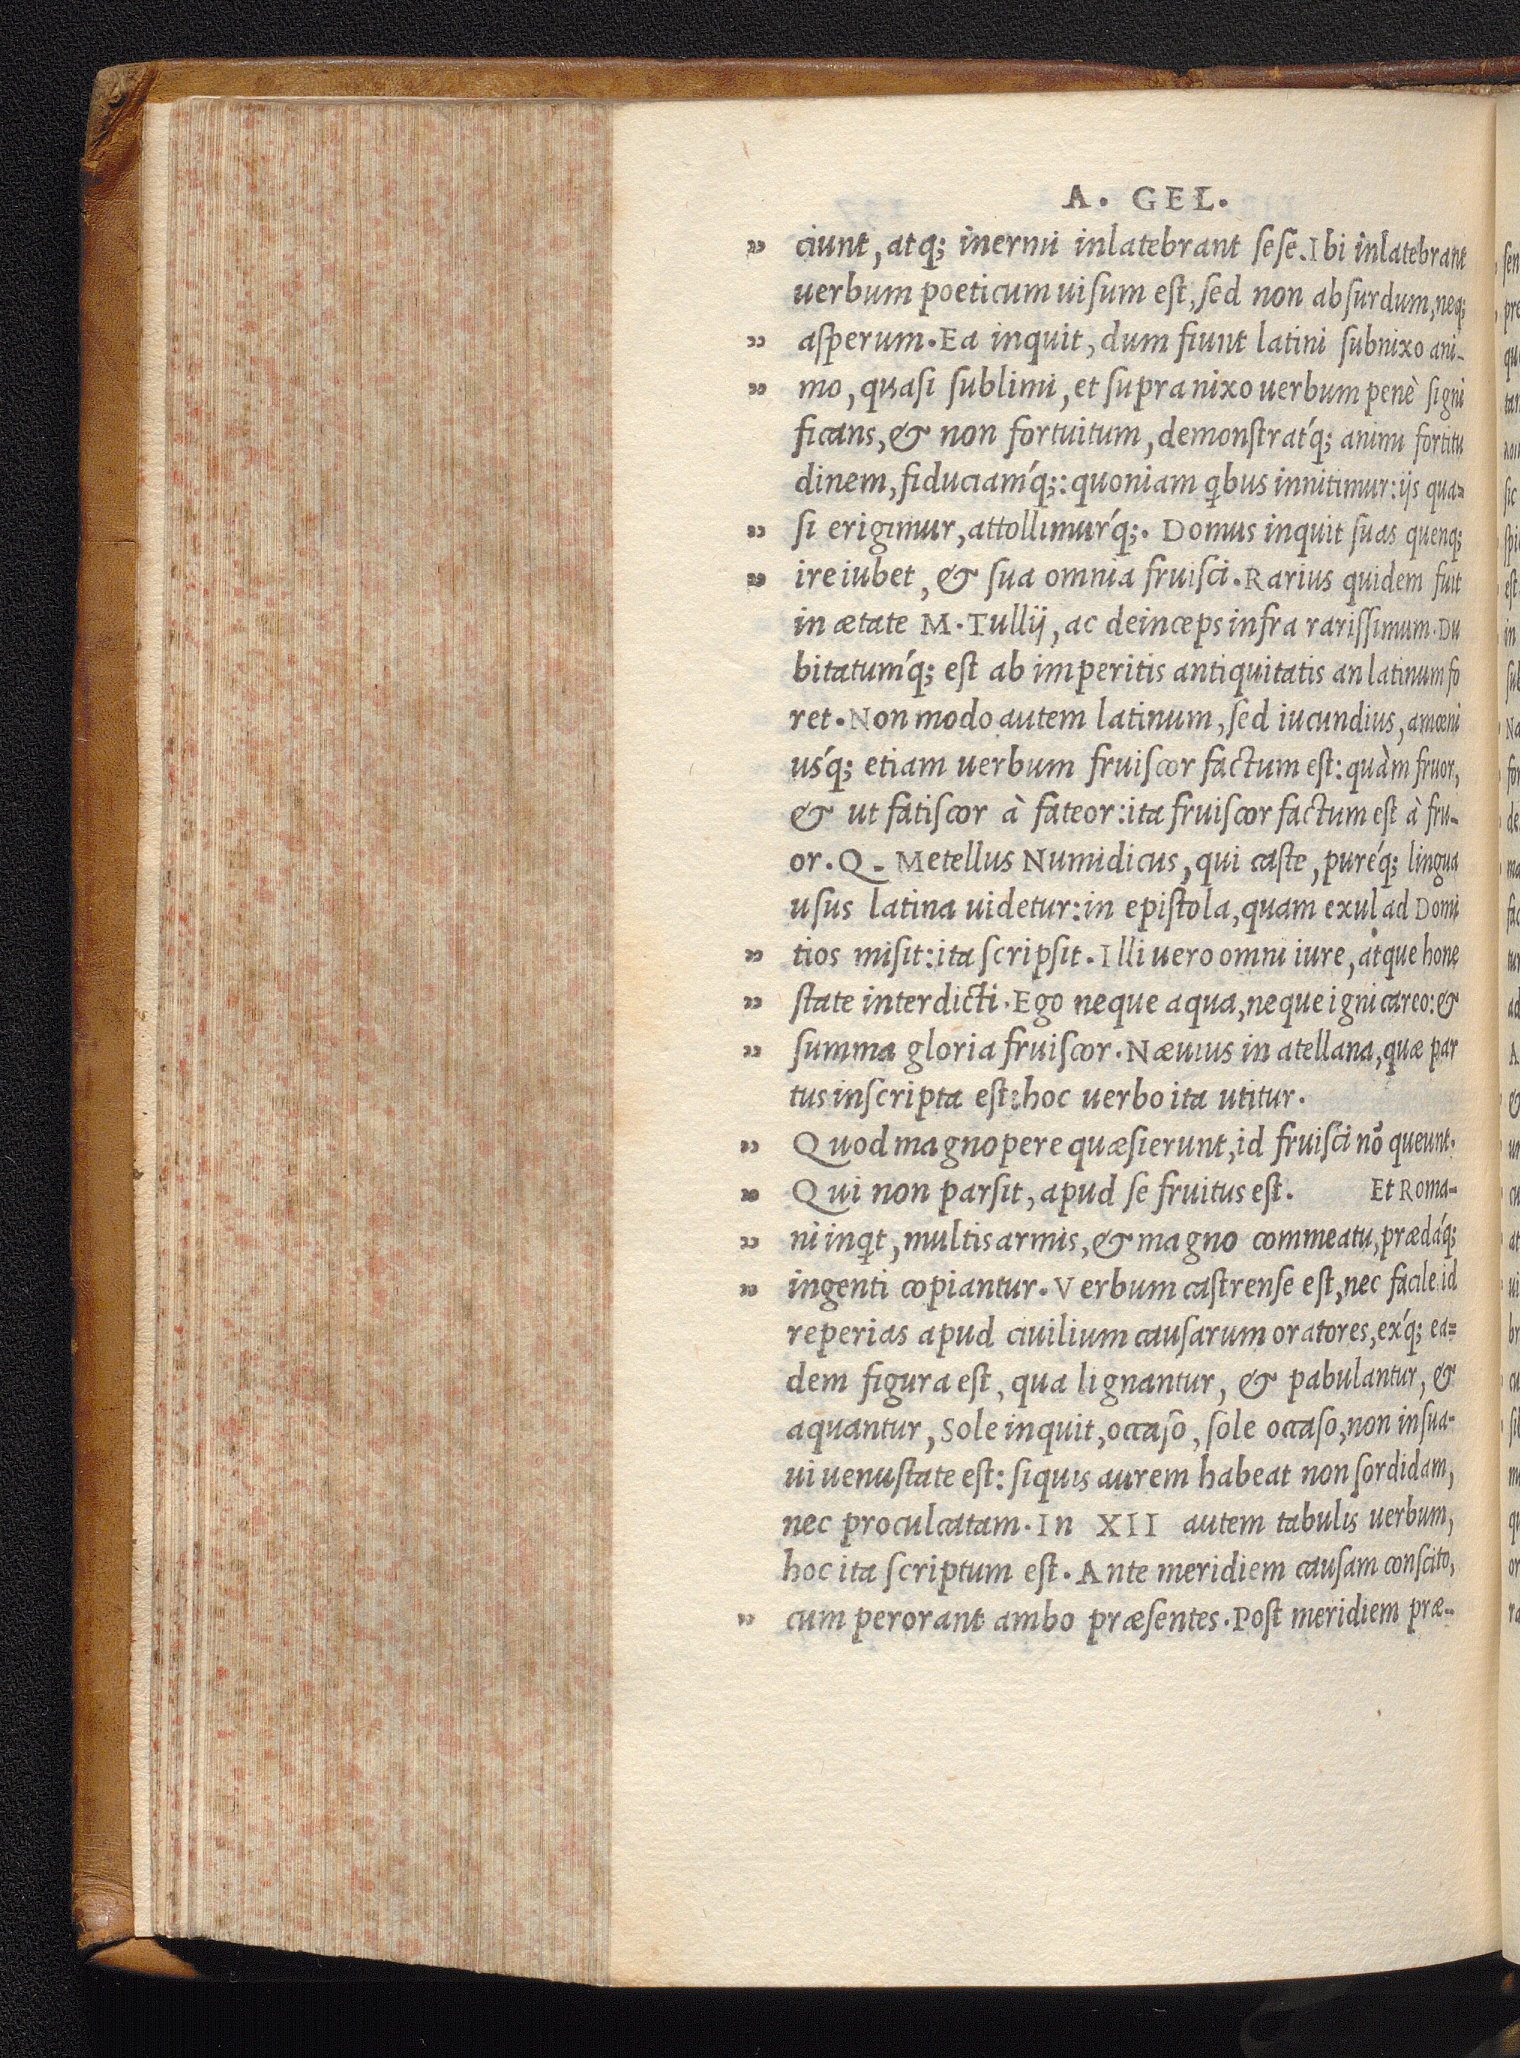 A. GEL.
„ ciunt, atq; inermi inlatebrant seſe. Ibi inlatebrant
uerbum poeticum uiſum eſt, ſed non abſurdum, neq;
„ aſperum. Ea inquit, dum fiunt latini ſubnixo ani-
„ mo, quaſi ſublimi, et ſupra nixo uerbum penè ſigni
ficans, & non fortuitum, demonſtrat'q; animi fortitu
dinem, fiduciam'q;: quoniam qbus innitimur: ijs qua-
„ ſi erigimur, attollimur'q;. Domus inquit ſuas quenq;
„ ire iubet, & ſua omnia fruiſci. Rarius quidem fuit
in ætate M. Tullij, ac deinceps infra rariſſimum. Du
bitatum'q; eſt ab imperitis antiquitatis an latinum fo
ret. Non modo autem latinum, ſed iucundius, amœni
us'q; etiam uerbum fruiſcor factum eſt: quàm fruor,
& ut fatiſcor à fateor: ita fruiſcor factum eſt à fru-
or. Q. Metellus Numidicus, qui caſte, puré'q; lingua
uſus latina uidetur: in epiſtola, quam exul ad Domi
„ tios miſit: ita ſcripſit. Illi uero omni iure, atque hone
„ ſtate interdicti. Ego neque aqua, neque igni careo: &
„ ſumma gloria fruiſcor. Næuius in atellana, quæ par
tus inſcripta eſt: hoc uerbo ita utitur.
„ Quod magnopere quæſierunt, id fruiſci nõ queunt.
„ Qui non parſit, apud ſe fruitus eſt. Et Roma-
„ ni inqt, multis armis, & magno commeatu, prædá'q;
„ ingenti copiantur. Verbum caſtrenſe eſt, nec facile id
reperias apud ciuilium cauſarum oratores, ex'q; ea-
dem figura eſt, qua lignantur, & pabulantur, &
aquantur, Sole inquit, occaſo, ſole occaſo, non inſua-
ui uenuſtate eſt: ſiquis aurem habeat non ſordidam,
nec proculcatam. In XII autem tabulis uerbum,
hoc ita ſcriptum eſt. Ante meridiem cauſam conſcito,
„ cum perorant ambo præſentes. Poſt meridiem præ-